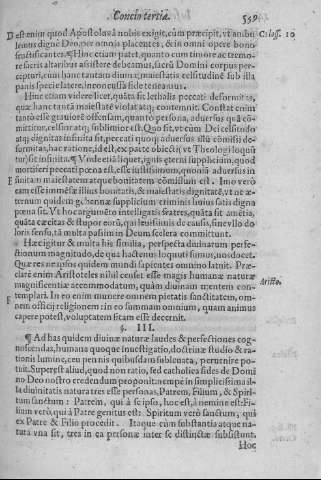 Concio tertia. 559
D est enim quod Apostolus à nobis exigit, cùm præcipit, vt ambu Coloss. 10
lemus dignè Deo, per omnia placentes, & in omni opere bono
fructificantes. ¶ Hinc etiam patet, quanto cum timore ac tremo-
re sacris altaribus assistere debeamus, sacrū Domini corpus per-
cepturi, cùm hanc tantam diuinæ maiestatis celsitudinē sub illa
panis specie latere, inconcussa fide teneamus.
Hinc etiam videre licet, quāta sit lethalis peccati deformitas,
quæ hanc tantā maiestatē violat atq; contemnit. Constat enim
tantò esse grauiorē offensam, quantò persona, aduersus quā cō-
mittitur, celsior atq; sublimior est. Quo fit, vt cùm Dei celsitudo
atq; dignitas infinita sit, peccati quoq; aduersus illū cōmissi de-
formitas, hac ratione, id est, ex parte obiecti (vt Theologi loquū
tur) sit infinita. ¶ Vnde etiā liquet, ignis æterni supplicium, quod
mortiferi peccati pœna est, esse iustissimum, quoniā aduersus in
E finitam maiestatem atque bonitatem cōmissum est. Imo verò
eam esse immēsæ illius bonitatis, & maiestatis dignitatē, vt ne æ-
ternum quidem gehennæ supplicium criminis huius satis digna
pœna sit. Vt hoc argumēto intelligatis fratres, quāta sit amētia,
quāta cæcitas & stupor eorū, qui leuissimis de causis, sine vllo do
loris sensu, tā multa passim in Deum scelera committunt.
Hæc igitur & multa his similia, perspecta diuinarum perfe-
ctionum magnitudo, de qua hactenus loquuti sumus, nos docet.
Quæ res ne ipsos quidem mundi sapientes omnino latuit. Præ-
clarè enim Aristoteles nihil censet esse magis humanæ naturæ
magnificentiæ accommodatum, quàm diuinam mentem con- Aristo.
templari. In eo enim munere omnem pietatis sanctitatem, om-
F nem officij religionem: in eo summam omnium, quam animus
capere potest, voluptatem sitam esse decernit.
§. III.
¶ Ad has quidem diuinæ naturæ laudes & perfectiones cog-
noscendas, humana quoque inuestigatio, doctrinæ studio & ra-
tionis lumine, ceu pennis quibusdam subleuata, peruenire po-
tuit. Superest aliud, quod non ratio, sed catholica fides de Domi
no Deo nostro credendum proponit: nempe in simplicissima il-
la diuinitatis natura tres esse personas, Patrem, Filium, & Spiri-
tum sanctum: Patrem, qui à se ipso, hoc est, à nemine est: Fi-
lium verò, qui à Patre genitus est: Spiritum verò sanctum, qui
ex Patre & Filio procedit. Itaque cùm substantia atque na-
tura vna sit, tres in ea personæ inter se distinctæ subsistunt.
Hoc